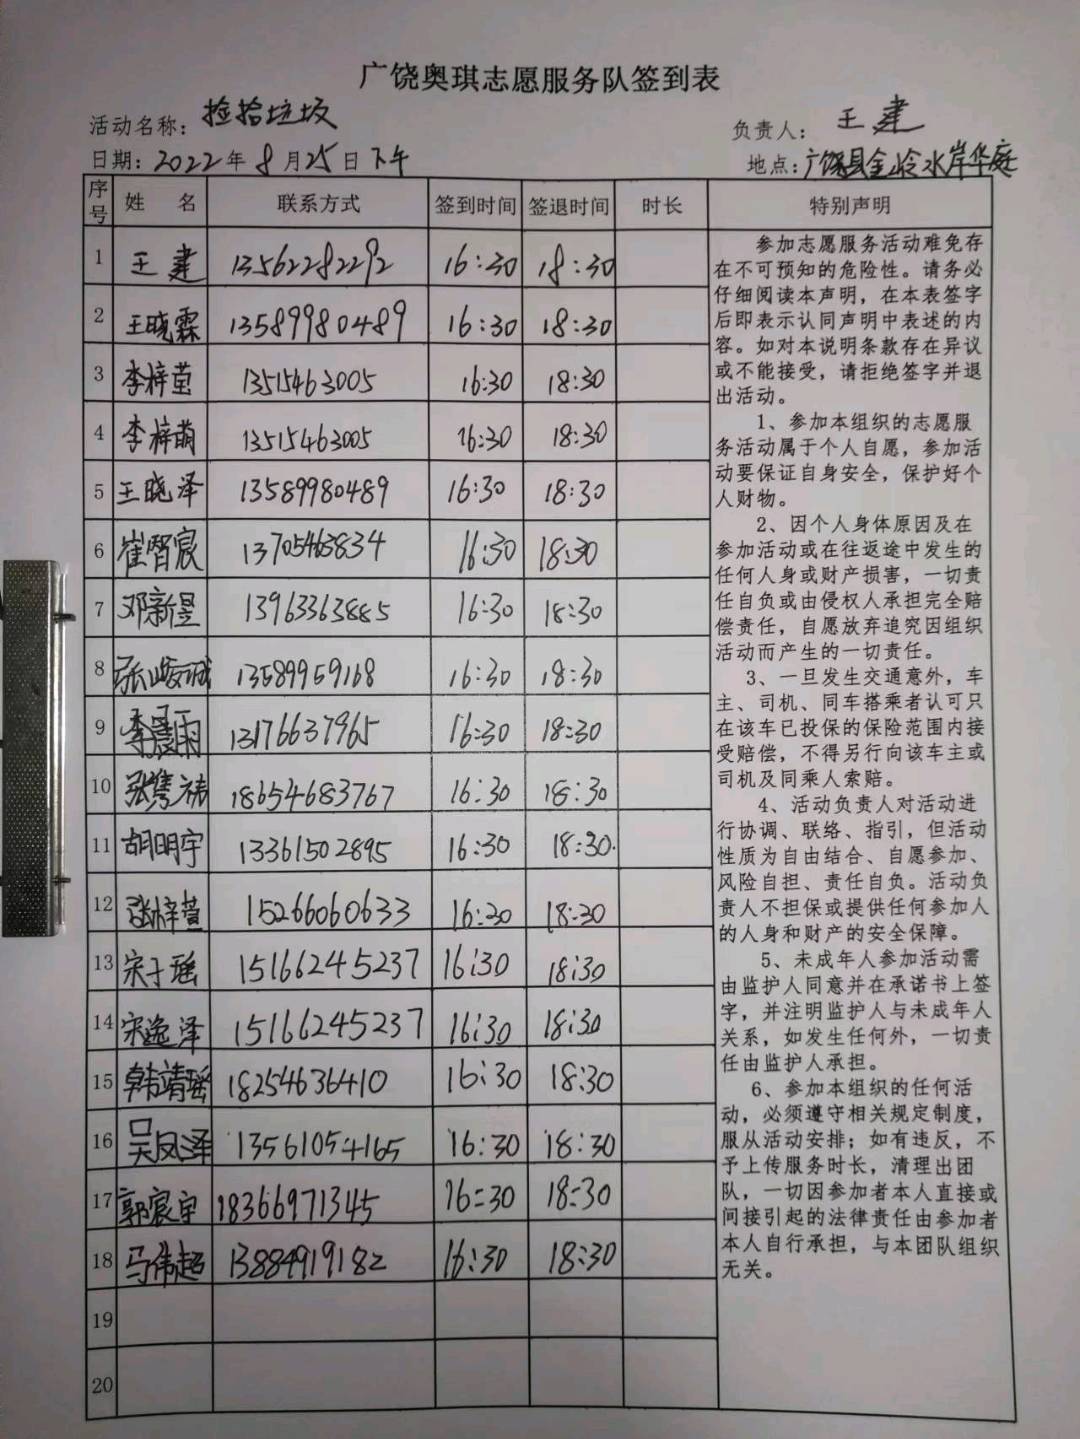 广饶奥琪志愿服务队签到表
活动名称：捡拾垃圾 负责人：王建
日期：2022年8月25日下午 地点：广饶县金岭水岸华庭
序号 姓 名 联系方式 签到时间 签退时间 时长 特别声明
1 王建 13562282292 16:30 18:30
2 王晓霖 13589980489 16:30 18:30
3 李梓莹 13515463005 16:30 18:30
4 李梓萌 13515463005 16:30 18:30
5 王晓泽 13589980489 16:30 18:30
6 崔智宸 13705463834 16:30 18:30
7 邓新昱 13963363885 16:30 18:30
8 张峻诚 13589959168 16:30 18:30
9 李晨雨 13176637965 16:30 18:30
10 张隽祎 18654683767 16:30 18:30
11 胡明宇 13361502895 16:30 18:30
12 张梓萱 15266060633 16:30 18:30
13 宋子瑶 15166245237 16:30 18:30
14 宋逸泽 15166245237 16:30 18:30
15 韩靖瑶 18254636410 16:30 18:30
16 吴凤泽 13561054165 16:30 18:30
17 郭宸宇 18366971345 16:30 18:30
18 马伟超 13884919182 16:30 18:30
19
20
参加志愿服务活动难免存
在不可预知的危险性。请务必
仔细阅读本声明，在本表签字
后即表示认同声明中表述的内
容。如对本说明条款存在异议
或不能接受，请拒绝签字并退
出活动。
1、参加本组织的志愿服
务活动属于个人自愿，参加活
动要保证自身安全，保护好个
人财物。
2、因个人身体原因及在
参加活动或在往返途中发生的
任何人身或财产损害，一切责
任自负或由侵权人承担完全赔
偿责任，自愿放弃追究因组织
活动而产生的一切责任。
3、一旦发生交通意外，车
主、司机、同车搭乘者认可只
在该车已投保的保险范围内接
受赔偿，不得另行向该车主或
司机及同乘人索赔。
4、活动负责人对活动进
行协调、联络、指引，但活动
性质为自由结合、自愿参加、
风险自担、责任自负。活动负
责人不担保或提供任何参加人
的人身和财产的安全保障。
5、未成年人参加活动需
由监护人同意并在承诺书上签
字，并注明监护人与未成年人
关系，如发生任何外，一切责
任由监护人承担。
6、参加本组织的任何活
动，必须遵守相关规定制度，
服从活动安排；如有违反，不
予上传服务时长，清理出团
队，一切因参加者本人直接或
间接引起的法律责任由参加者
本人自行承担，与本团队组织
无关。